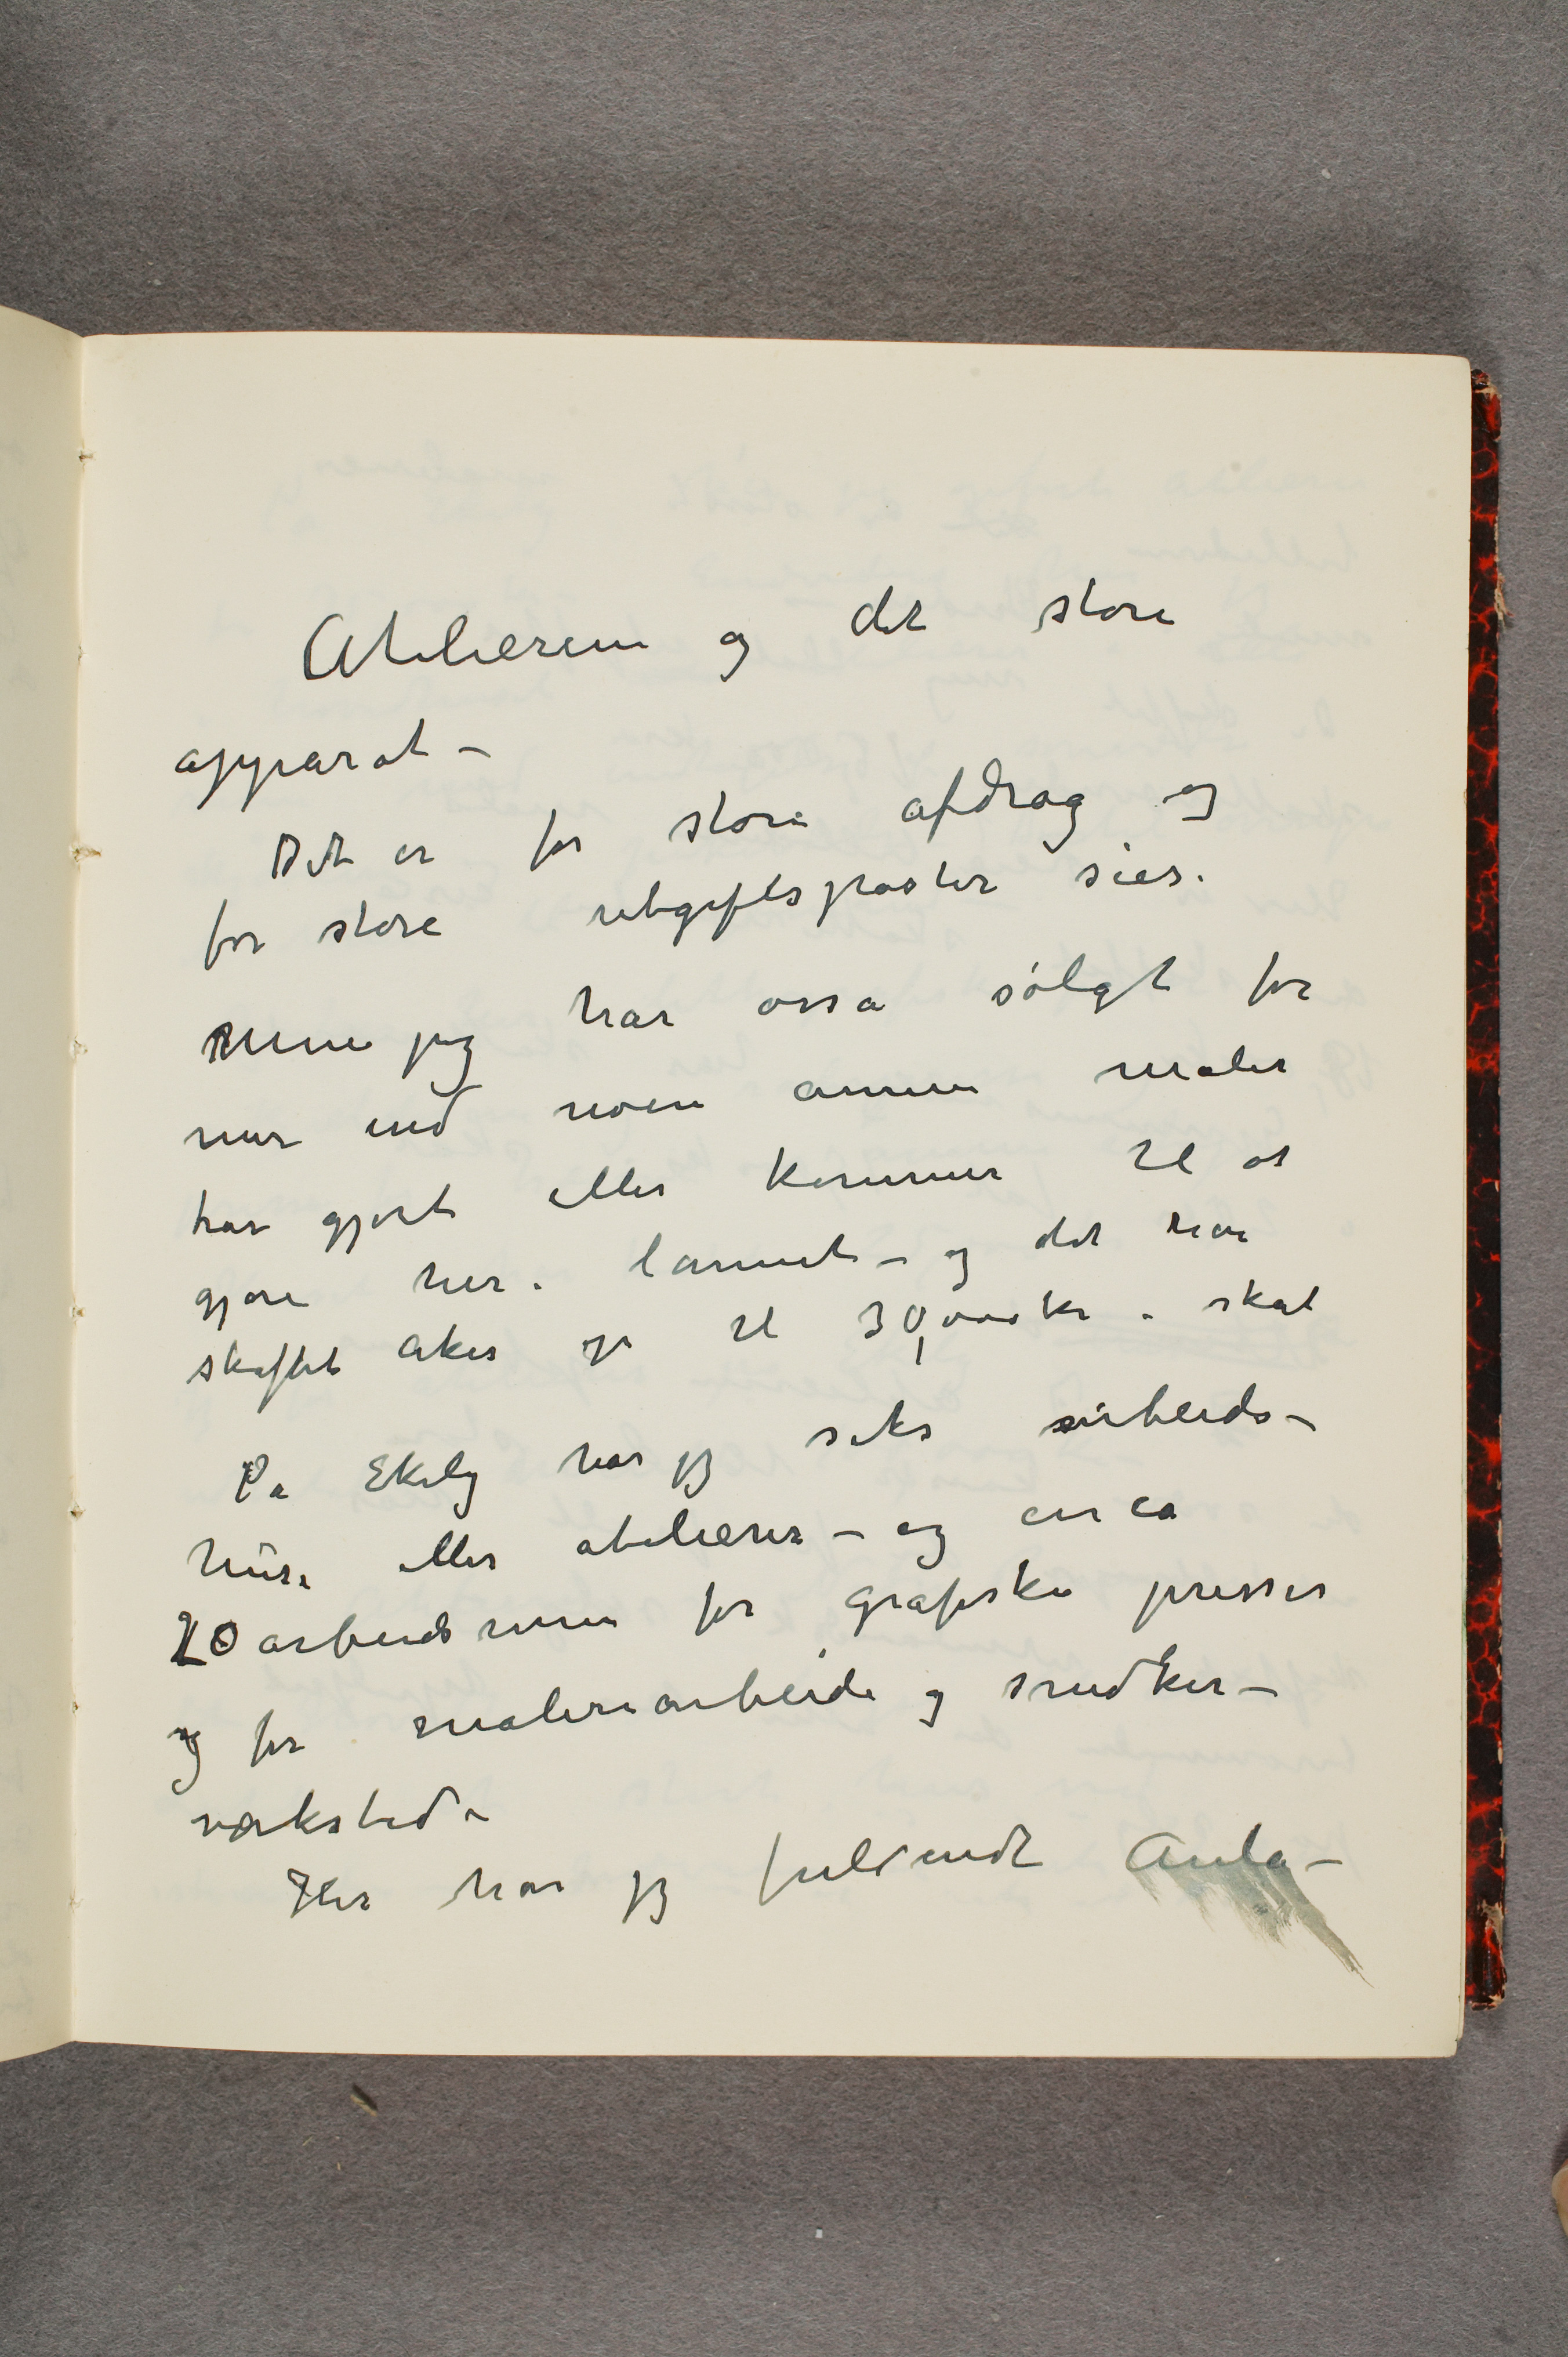 Atelierene og det store
apparat –
Det er for store afdrag og
for store utgiftsposter sies.
Men jeg har osså sålgt for
mer end noen annen maler
har gjort eller kommer til at
gjøre her i lannet – og det har
skaffet Aker op til 30,000 kr i skat
På Ekely har jeg seks arbeids–
huse eller atelierer – og circa
20 arbeidsrum for grafiske presser
og for malerarbeide og snedker–
værksted –
Her har jeg fuldendt Aula–